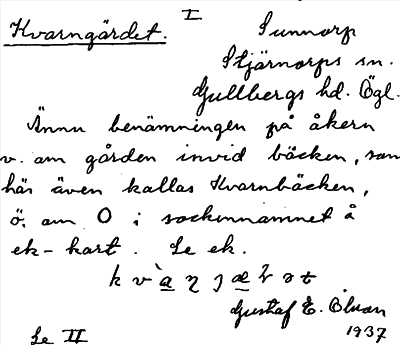 I
Kvarngärdet. Sunnorp
Stjärnorps sn.
Gullbergs hd. Ögl.
Ännu benämningen på åkern
v. om gården invid bäcken, som
här även kallas Kvarnbäcken,
ö. om O i sockennamnet å
ek-kart. Se ek.
Gustaf E.
1937
Se II